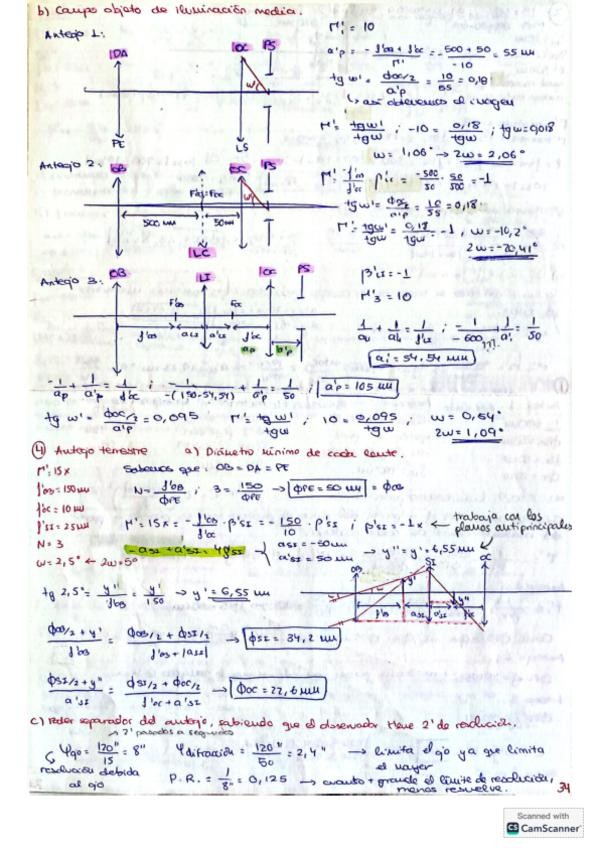 b) Campo objeto de iluminación media.
Anteojo 1:
OA
OC
PS
w'
PE
LS
M'1 = 10
a'p = - f'OB + f'OC / M' = -500 + 50 / -10 = 55 mm
tg w' = ΦOC/2 / a'p = 10/55 = 0,18
↳ así obtenemos el imagen
M' = tg w' / tg w ; -10 = 0,18 / tg w ; tg w = 0,018
w = 1,06° → 2w = 2,06°
Anteojo 2:
OB
OC
PS
500 mm
50 mm
LC
-500/50 · 50/500 = -1
tg w' = 10/55 = 0,18
M' = tg w' / tg w ; 0,18 / tg w = -1 ; w = -10,2°
2w = -20,41°
Anteojo 3:
OB
LI
OC
PS
F'OB
FOC
f'OB
aLI
a'LI
f'OC
ap
a'p
β'LI = -1
M'3 = 10
1/-600 + 1/a'i = 1/50
???
a'i = 54,54 mm
-1/ap + 1/a'p = 1/f'OC ; -1/-(150-54,54) + 1/a'p = 1/50 ; a'p = 105 mm
tg w' = ΦOC/2 / a'p = 0,095
M' = tg w' / tg w ; 10 = 0,095 / tg w ; w = 0,54°
2w = 1,09°
④ Anteojo terrestre
a) Diámetro mínimo de cada lente.
M' = 15x
f'OB = 150 mm
f'OC = 10 mm
f'SI = 25 mm
N = 3
w = 2,5° ← 2w = 5°
Sabemos que: OB = DA = PE
N = f'OB / ΦPE ; 3 = 150 / ΦPE → ΦPE = 50 mm = ΦOB
M' = 15x = - f'OB / f'OC · β'SI = - 150/10 · β'SI ; β'SI = -1x ← trabaja con los planos antiprincipales
-aSI + a'SI = 4f'SI
aSI = -50 mm
a'SI = 50 mm
→ y'' = y' = 6,55 mm
tg 2,5° = y' / f'OB = y' / 150 → y' = 6,55 mm
OB
SI
OC
y'
y''
f'OB
aSI
a'SI
f'OC
ΦOB/2 + y' / f'OB = ΦOB/2 + ΦSI/2 / f'OB + |aSI| → ΦSI = 34,2 mm
ΦSI/2 + y'' / a'SI = ΦSI/2 + ΦOC/2 / f'OC + a'SI → ΦOC = 22,6 mm
c) Poder separador del anteojo, sabiendo que el observador tiene 2' de resolución.
→ 2' pasados a segundos
φojo = 120'' / 15 = 8''
↳ resolución debida al ojo
φdifracción = 120'' / 50 = 2,4'' → limita el ojo ya que limita el mayor
P.R. = 1/8'' = 0,125 → cuanto + grande el límite de resolución, menos resuelve.
34
Scanned with
CS CamScanner